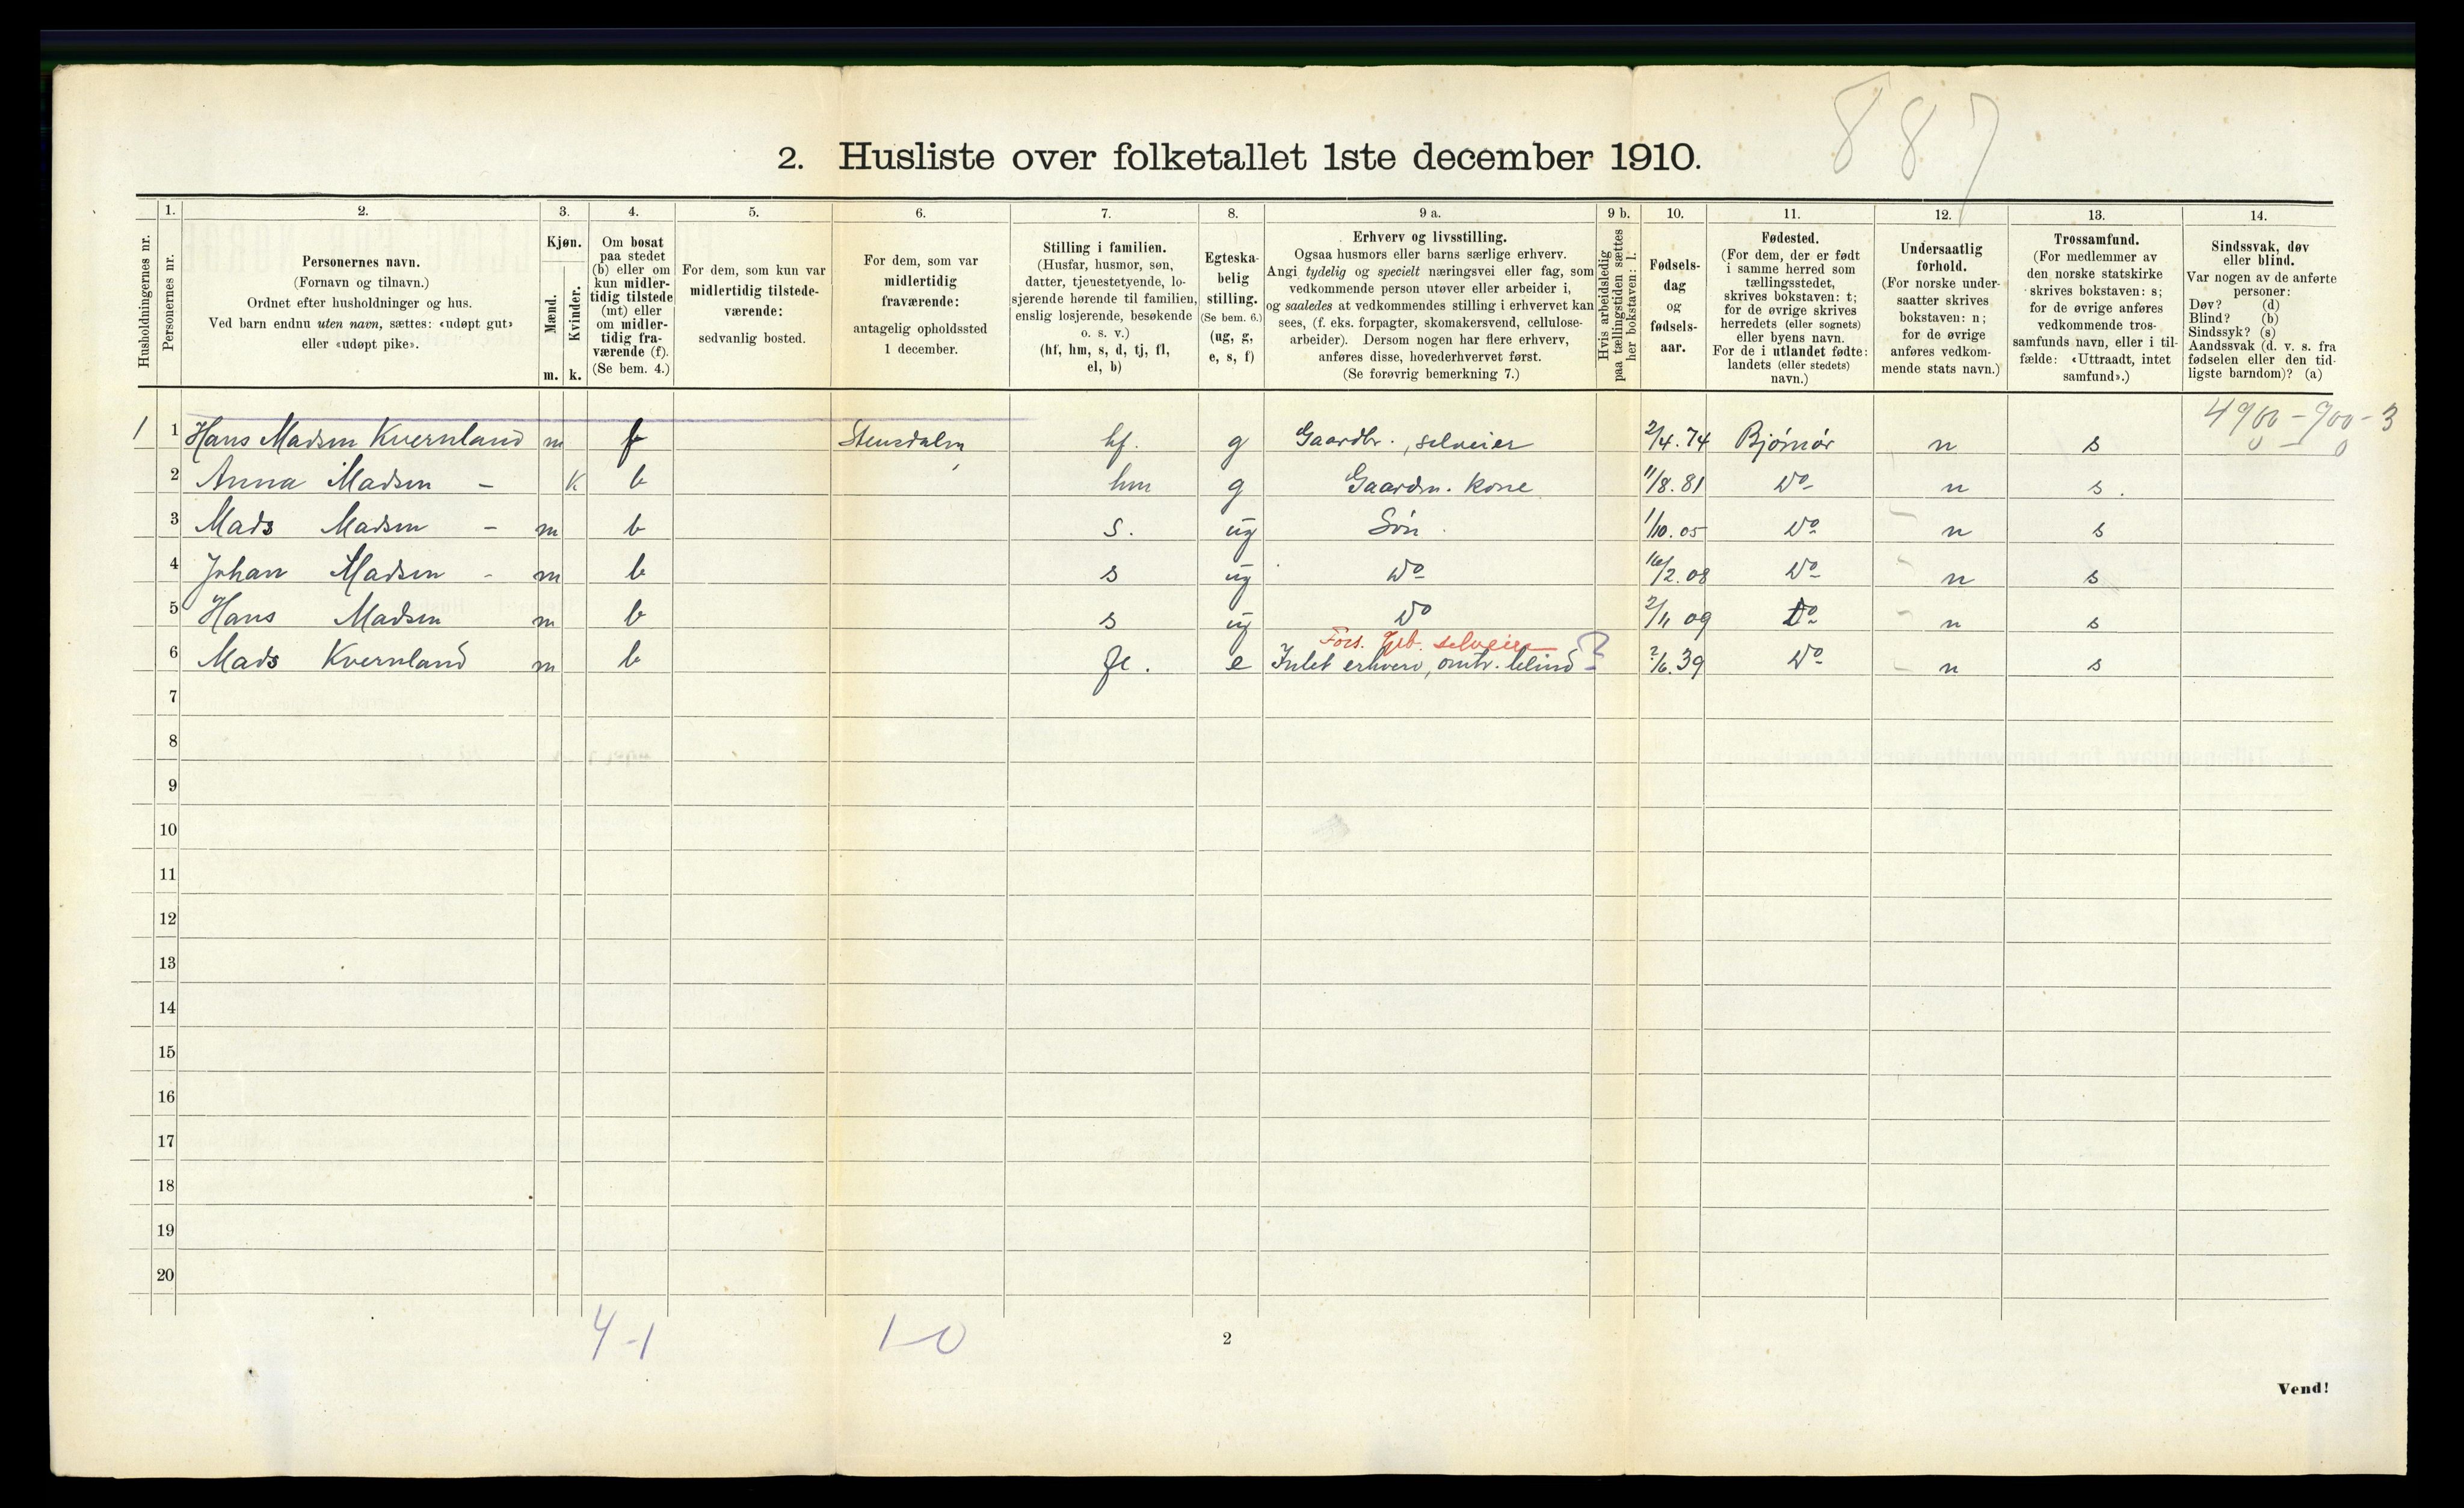 887
2. Husliste over folketallet 1ste december 1910.
Husholdningernes nr.
1.
Personernes nr.
2.
Personernes navn.
(Fornavn og tilnavn.)
Ordnet efter husholdninger og hus.
Ved barn endnu uten navn, sættes: «udøpt gut»
eller «udøpt pike».
3.
Kjøn.
Mænd.
m.
Kvinder.
k.
4.
Om bosat
paa stedet
(b) eller om
kun midler-
tidig tilstede
(mt) eller
om midler-
tidig fra-
værende (f).
(Se bem. 4.)
5.
For dem, som kun var
midlertidig tilstede-
værende:
sedvanlig bosted.
6.
For dem, som var
midlertidig
fraværende:
antagelig opholdssted
1 december.
7.
Stilling i familien.
(Husfar, husmor, søn,
datter, tjenestetyende, lo-
sjerende hørende til familien,
enslig losjerende, besøkende
o. s. v.)
(hf, hm, s, d, tj, fl,
el, b)
8.
Egteska-
belig
stilling.
(Se bem. 6.)
(ug, g,
e, s, f)
9 a.
Erhverv og livsstilling.
Ogsaa husmors eller barns særlige erhverv.
Angi tydelig og specielt næringsvei eller fag, som
vedkommende person utøver eller arbeider i,
og saaledes at vedkommendes stilling i erhvervet kan
sees, (f. eks. forpagter, skomakersvend, cellulose-
arbeider). Dersom nogen har flere erhverv,
anføres disse, hovederhvervet først.
(Se forøvrig bemerkning 7.)
9 b.
Hvis arbeidsledig
paa tællingstiden sættes
her bokstaven: l.
10.
Fødsels-
dag
og
fødsels-
aar.
11.
Fødested.
(For dem, der er født
i samme herred som
tællingsstedet,
skrives bokstaven: t;
for de øvrige skrives
herredets (eller sognets)
eller byens navn.
For de i utlandet fødte:
landets (eller stedets)
navn.)
12.
Undersaatlig
forhold.
(For norske under-
saatter skrives
bokstaven: n;
for de øvrige
anføres vedkom-
mende stats navn.)
13.
Trossamfund.
(For medlemmer av
den norske statskirke
skrives bokstaven: s;
for de øvrige anføres
vedkommende tros-
samfunds navn, eller i til-
fælde: «Uttraadt, intet
samfund».)
14.
Sindssvak, døv
eller blind.
Var nogen av de anførte
personer:
Døv? (d)
Blind? (b)
Sindssyk? (s)
Aandssvak (d. v. s. fra
fødselen eller den tid-
ligste barndom)? (a)
4900 - 900 - 3
0 — 0
1 1 Hans Madsen Kvernland m f Stensdalen hf. g Gaardbr., selveier 2/4. 74 Bjørnør n s
2 Anna Madsen - k b hm g Gaardm. kone 11/8. 81 Do n s.
3 Mads Madsen - m b s. ug Søn 1/10. 05 Do n s
4 Johan Madsen - m b s ug Do 16/2. 08 Do n s
5 Hans Madsen m b s ug Do 2/11 09 Do n s
Fors. Gbr. selveier
6 Mads Kvernland m b fl. e Intet erhverv, omtr. blind ? 2/6. 39 Do n s
7
8
9
10
11
12
13
14
15
16
17
18
19
20
4-1 1-0
2
Vend!